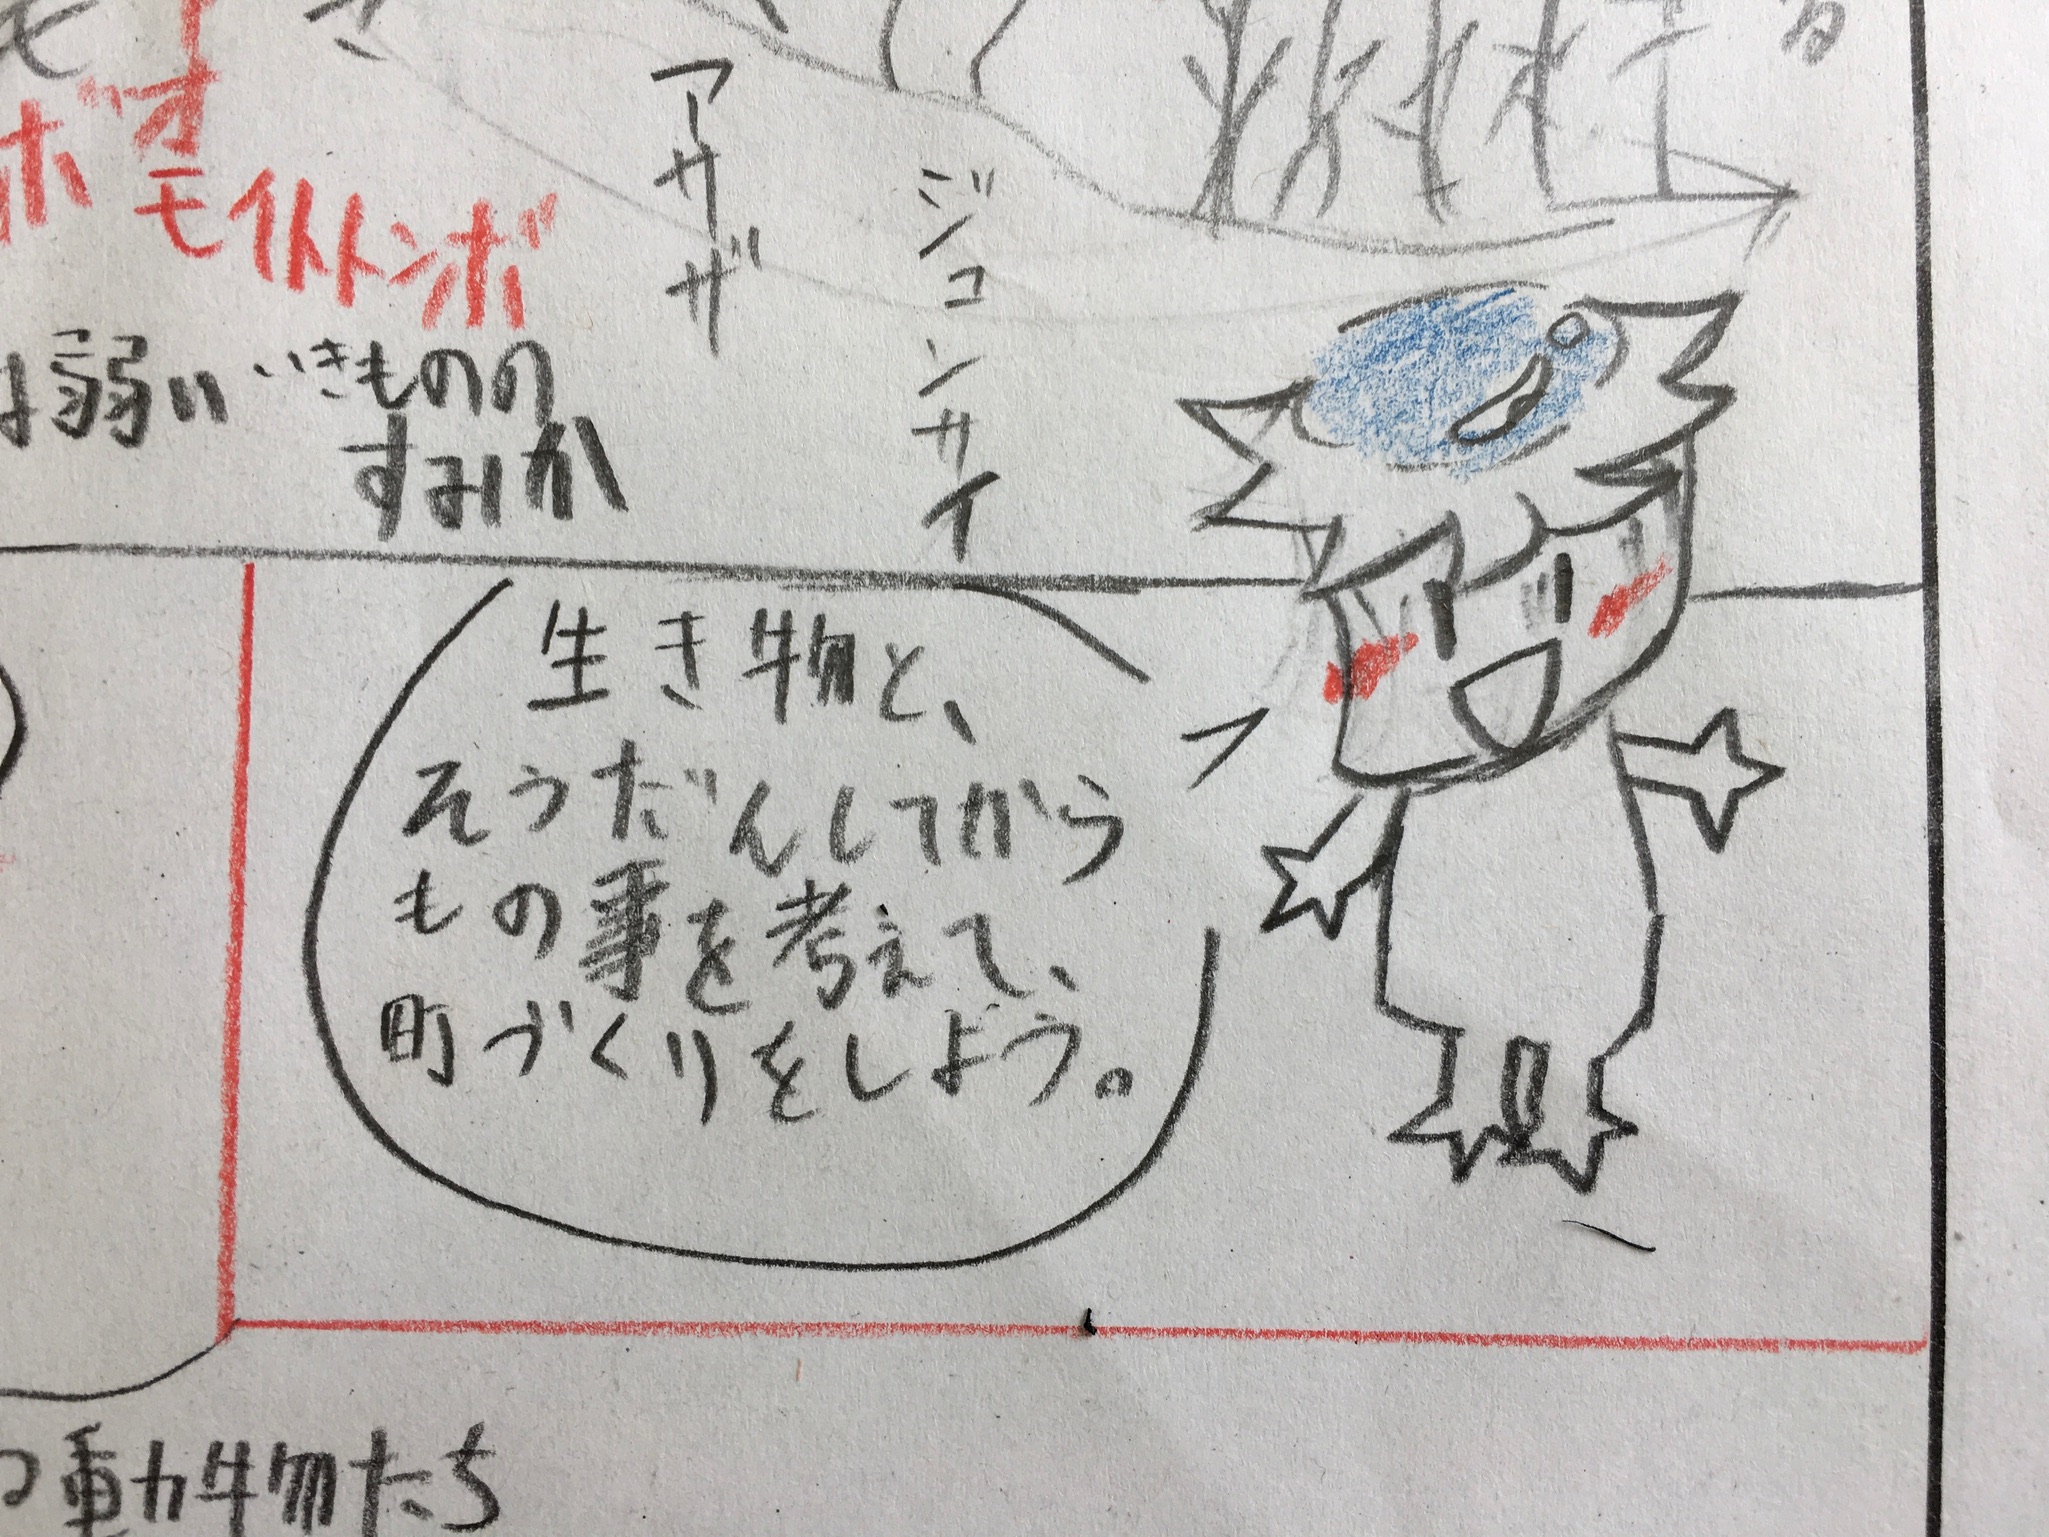 る
アサザ
ジュンサイ
オ
モイトトンボ
は弱いいきものの
すみか
生き物と、
そうだんしてから
もの事を考えて、
町づくりをしよう。
動物たち